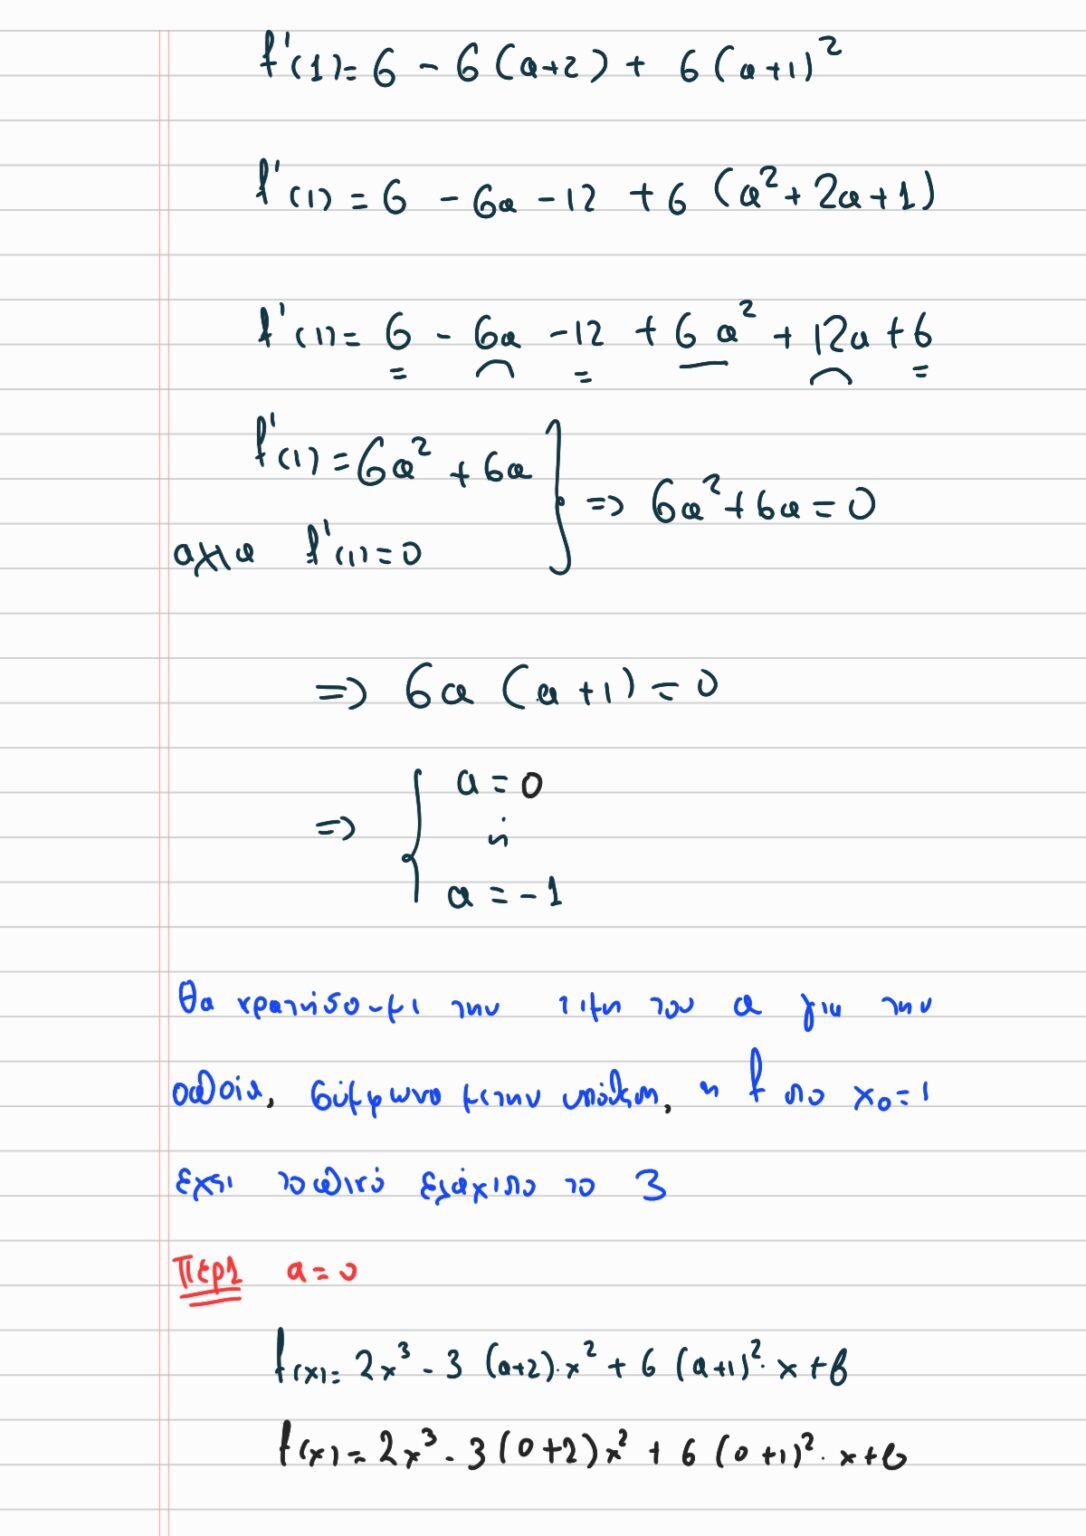 f'(1)= 6 - 6(α+2) + 6(α+1)²
f'(1) = 6 - 6α - 12 + 6 (α² + 2α + 1)
f'(1) = 6 - 6α - 12 + 6α² + 12α + 6
f'(1) = 6α² + 6α
αλλα f'(1) = 0 } => 6α² + 6α = 0
=> 6α (α+1) = 0
=> { α = 0
ή
α = -1
Θα κρατήσουμε την τιμη του α για την
οποία, σύμφωνα με την υπόθεση, η f στο x₀ = 1
έχει τοπικό ελάχιστο το 3
Περ1 α = 0
f(x) = 2x³ - 3 (α+2)·x² + 6 (α+1)²· x + β
f(x) = 2x³ - 3 (0+2) x² + 6 (0+1)² · x + β